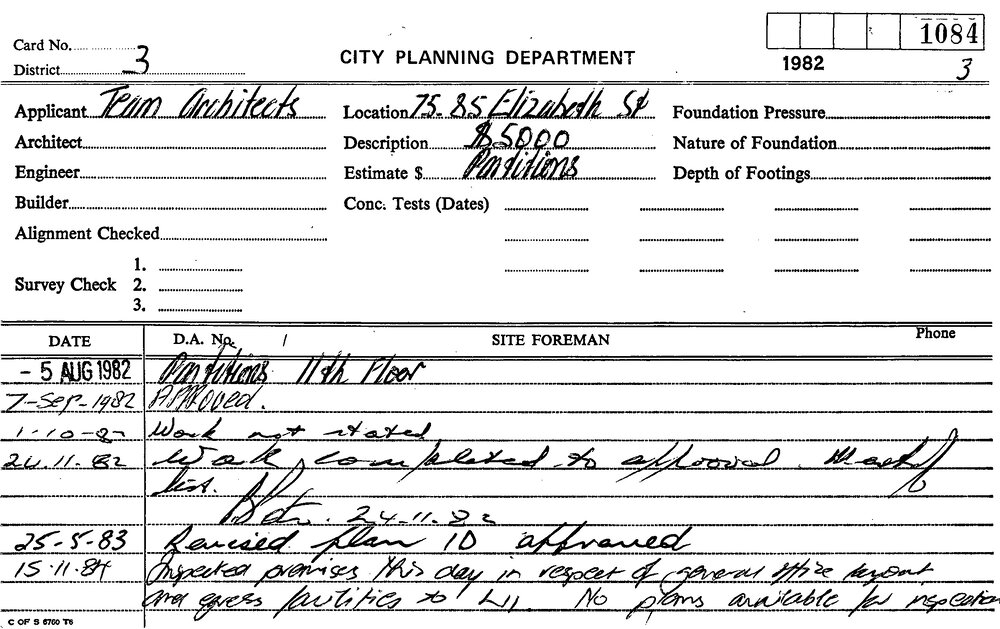 Card No. 3
District
CITY PLANNING DEPARTMENT
1084
1982
3
Applicant Team Architects
Location 75-85 Elizabeth St
Foundation Pressure
Architect
Description $5000
Nature of Foundation
Engineer
Estimate $ Partitions
Depth of Footings
Builder
Conc. Tests (Dates)
Alignment Checked
Survey Check 1.
2.
3.
DATE D.A. No. / SITE FOREMAN Phone
- 5 AUG 1982 Partitions 11th Floor
7-Sep-1982 Approved.
1-10-82 Work not stated
24.11.82 Work completed to approval.
list.
24.11.82
25-5-83 Revised plan 10 approved
15.11.84 Inspected premises this day in respect of general office layout
and egress facilities to L11. No plans available for inspection
C OF S 6700 T6